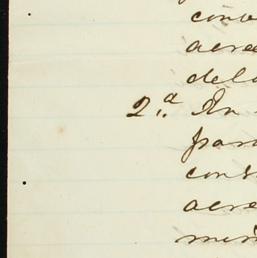 conv
acre
dela
2.ª En
para
cons
acre
min